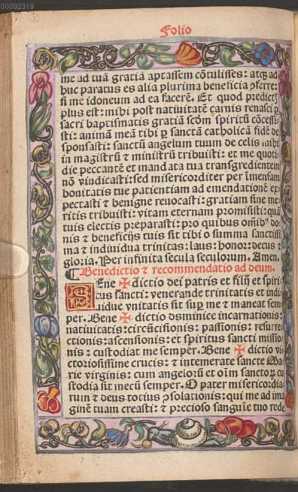 00092319
Folio
me ad tuā gratiā aptassem cōtulisses: atq; ad
huc paratus es alia plurima beneficia p̄ferre:
si me idoneum ad ea facerē. Et quod predictis
plus est: mihi post natiuitatē carnis renasci p
sacri baptismatis gratiā scdm̄ spiritū cōcessi
sti: animā meā tibi p sanctā catholicā fidē de
sponsasti: sanctū angelum tuum de celis
in magistrū & ministrū tribuisti: et me quoti
die peccantē et mandata tua transgredientem
nō vindicasti sed misericorditer per immensam
bonitatis tue patientiam ad emendationē ex
pectasti & benigne reuocasti: gratiam sine me
ritis tribuisti: vitam eternam promisisti: quā
tuis electis preparasti: pro quibus omib° do
nis & beneficijs tuis sit tibi o summa sancta
na & indiuidua trinitas: laus: honor: decus &
gloria. Per infinita secula seculorum. Amen.
¶ Benedictio & recommendatio ad deum.
BEne ✠ dictio dei patris et filij et spiri
tus sancti: venerande trinitatis et indi
uidue vnitatis sit sup me & maneat sem
per. Bene ✠ dictio dominice incarnationis:
natiuitatis: circūcisionis: passionis: resurre
ctionis: ascensionis: et spiritus sancti missio
nis: custodiat me semper. Bene ✠ dictio vi
ctoriosissime crucis: & intemerate sancte Ma
rie virginis: cum angelorū et oīm sanctoꝝ cu
stodia sit mecū semper. O pater misericordia
rum & deus totius ꝯsolationis: qui me ad ima
ginē tuam creasti: & precioso sanguīe tuo rede